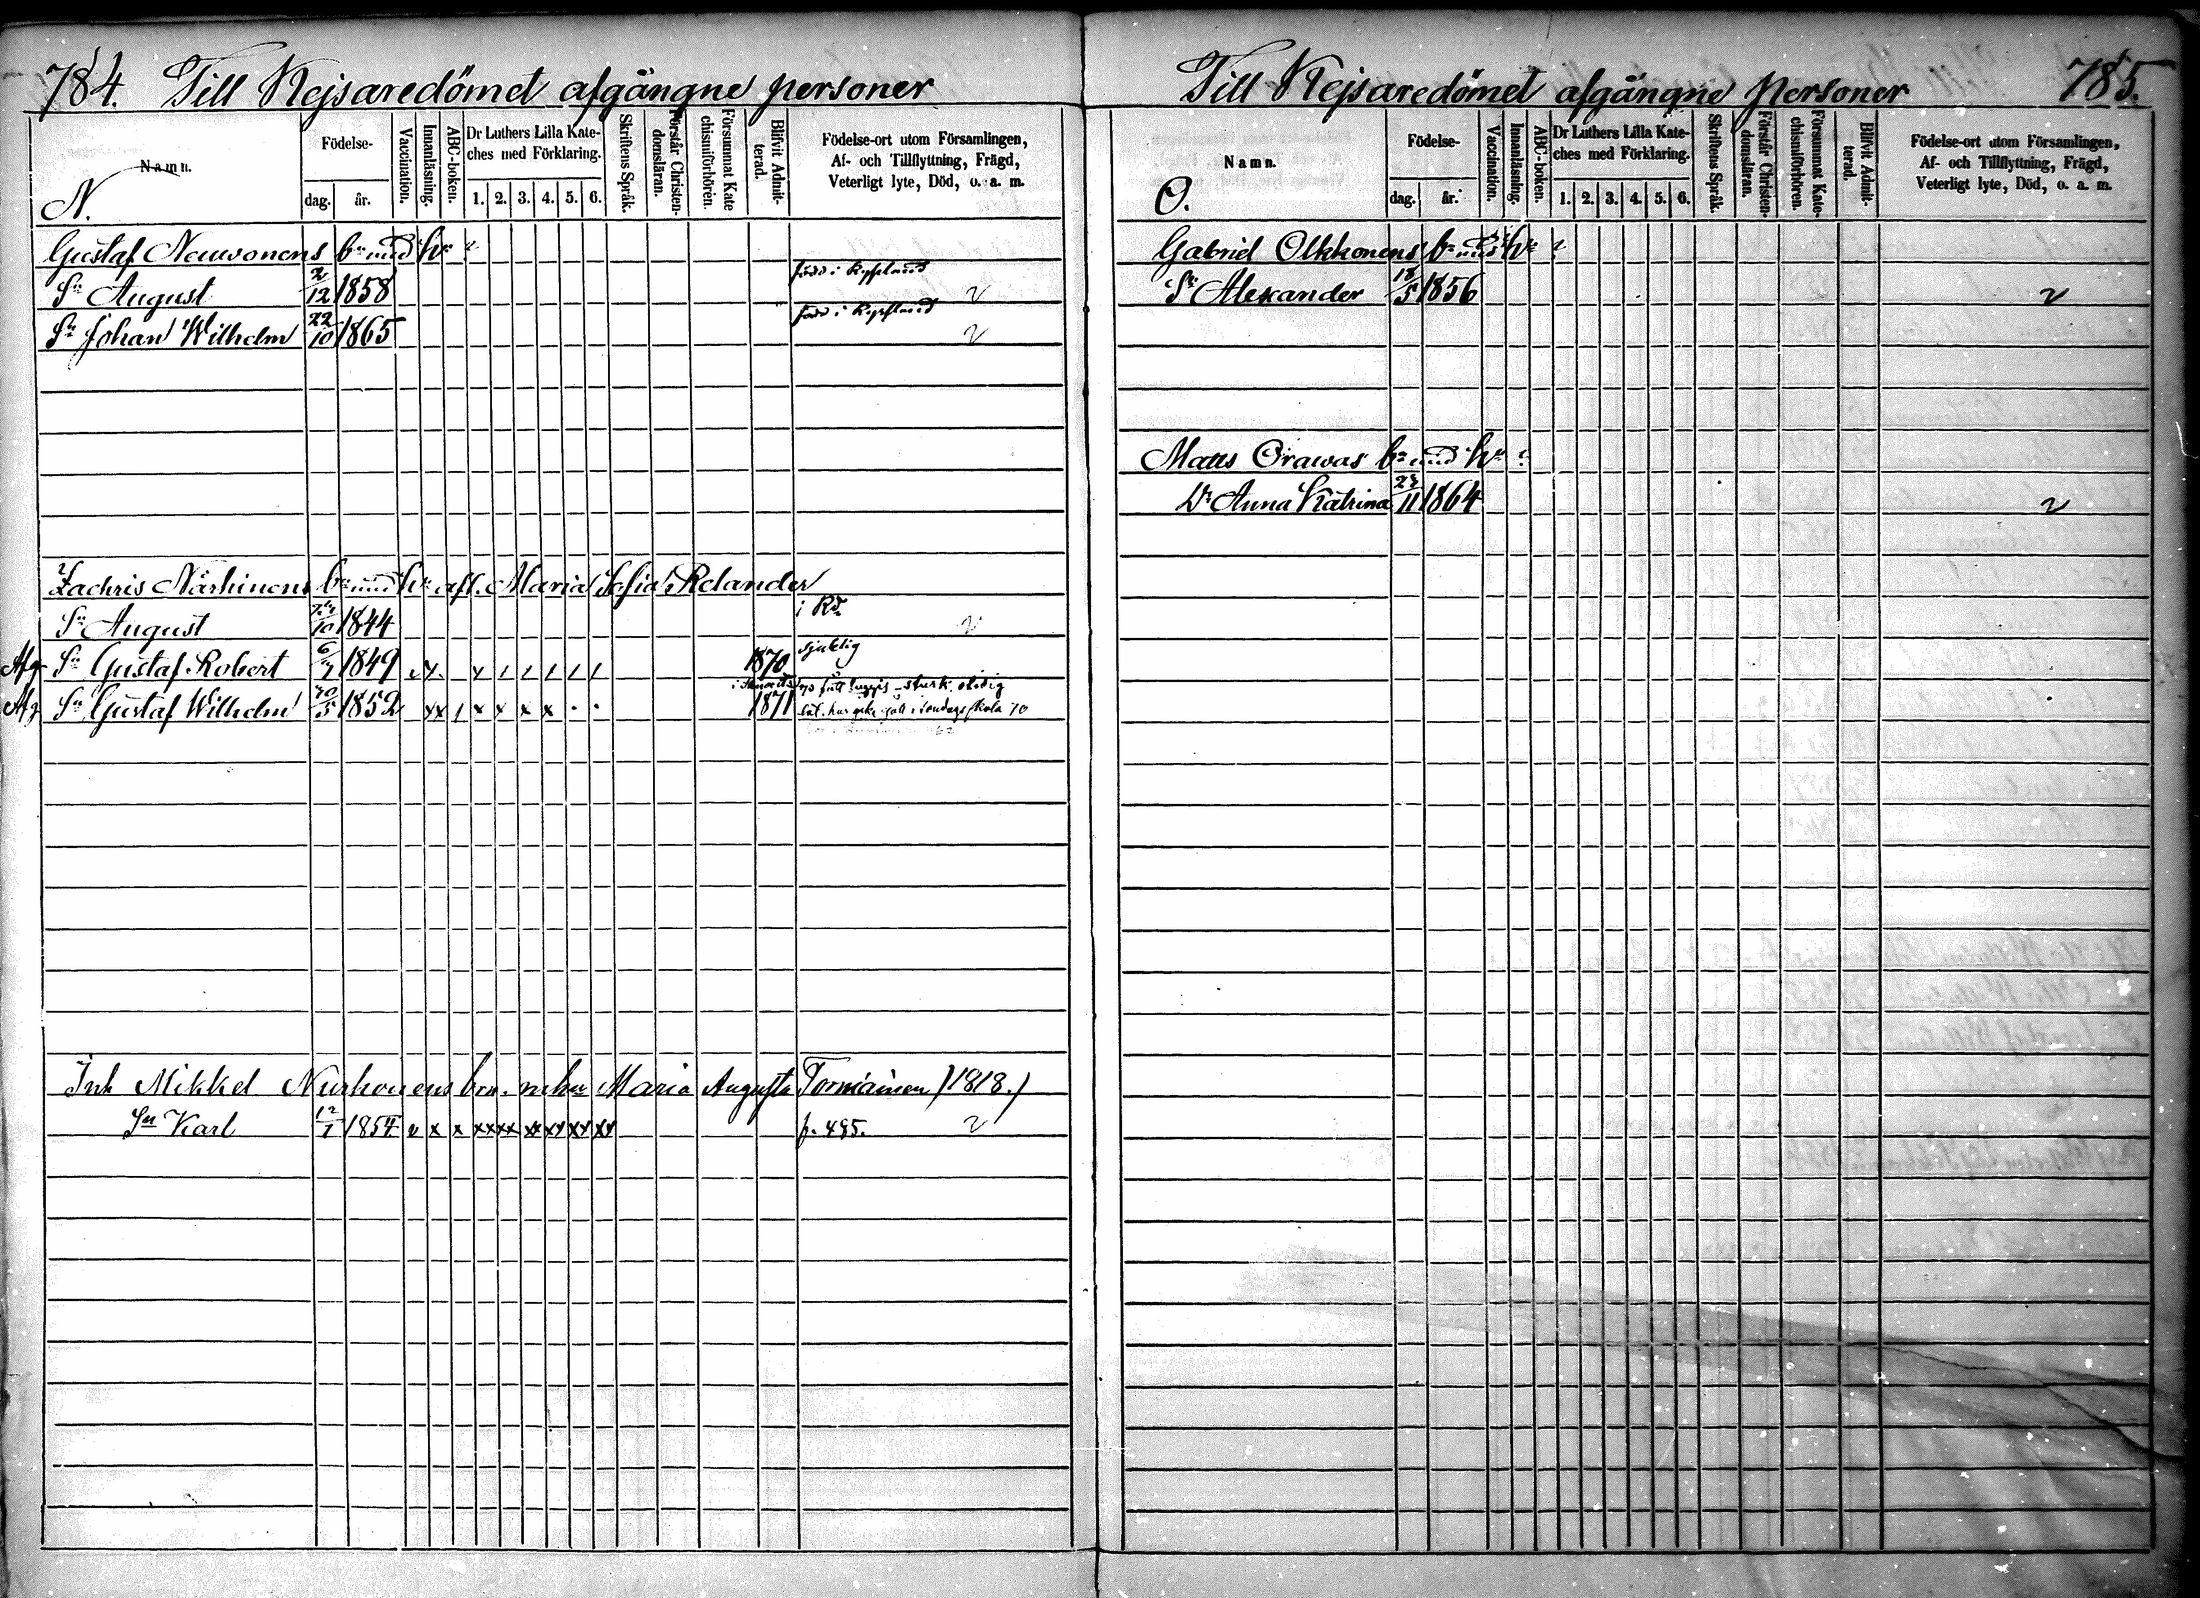 784. Till Kejsaredömet afgångne personer
Namn.
N.
Födelse-
dag. år.
Vaccination.
Innanläsning.
ABC-boken.
Dr Luthers Lilla Kate-
ches med Förklaring.
1. 2. 3. 4. 5. 6.
Skriftens Språk.
Förstår Christen-
domsläran.
Försummat Kate
chismiförhören.
Blifvit Admit-
terad.
Födelse-ort utom Församlingen,
Af- och Tillflyttning, Frägd,
Veterligt lyte, Död, o. a. m.
Gustaf Neuvonens bn med hn
Sn August 2/12 1858 född i Ryssland
Sn Johan Wilhelm 22/10 1865 född i Ryssland
Zachris Närhinens bn med hn afl. Maria Sofia Relander
Sn August /10 1844 i Rd
Afg Sn Gustaf Robert 6/7 1849 x 1 1 1 1 1 1870 sjuklig
Afg Sn Gustaf Wilhelm /5 1852 xx 1 x x x x . . 1871
har icke gått i söndagsskola 70
Inh Mikkel Nurhonens brn. m hu Maria Augusta Tormäinen (1818.)
Sn Karl 12/1 1854 v x x xx xx xx xx xx xx p. 485.
Till Kejsaredömet afgångne personer 785.
Namn.
O.
Födelse-
dag. år.
Vaccination.
Innanläsning.
ABC-boken.
Dr Luthers Lilla Kate-
ches med Förklaring.
1. 2. 3. 4. 5. 6.
Skriftens Språk.
Förstår Christen-
domsläran.
Försummat Kate-
chismiförhören.
Blifvit Admit-
terad.
Födelse-ort utom Församlingen,
Af- och Tillflyttning, Frägd,
Veterligt lyte, Död, o. a. m.
Gabriel Olkkonens bn med hn
Sn Alexander 18/5 1856
Matts Orawas bn med hn
Dr Anna Katrina 23/11 1864